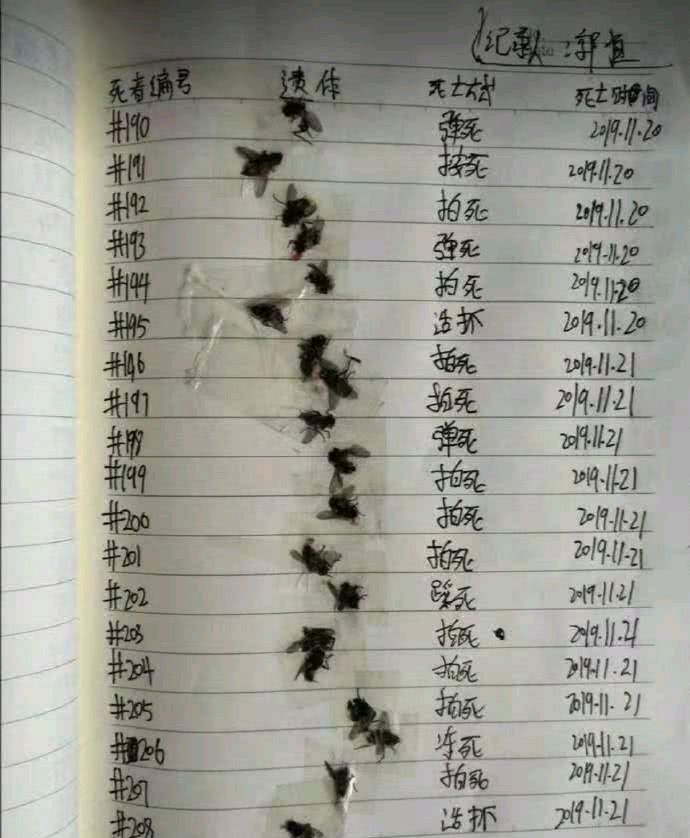 记录人:郭
死者编号 遗体 死亡方式 死亡时间
#190 弹死 2019.11.20
#191 按死 2019.11.20
#192 拍死 2019.11.20
#193 弹死 2019.11.20
#194 拍死 2019.11.20
#195 活抓 2019.11.20
#196 拍死 2019.11.21
#197 拍死 2019.11.21
#198 弹死 2019.11.21
#199 拍死 2019.11.21
#200 拍死 2019.11.21
#201 拍死 2019.11.21
#202 踩死 2019.11.21
#203 2019.11.21
#204 拍死 2019.11.21
#205 拍死 2019.11.21
#206 冻死 2019.11.21
#207 拍死 2019.11.21
#208 活抓 2019.11.21